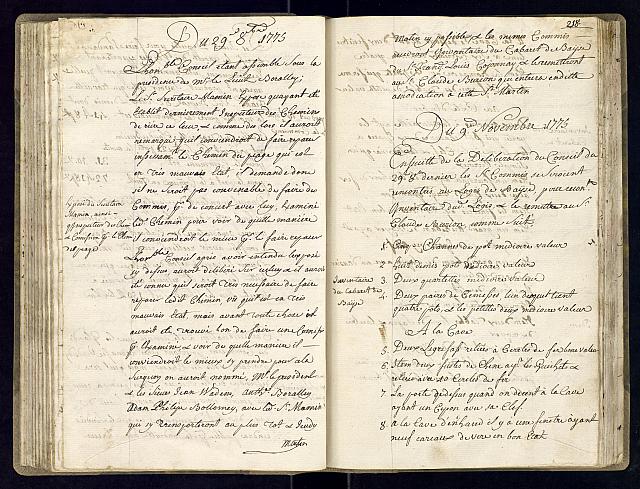 Du 29e 8bre 1775
L'honble Conseil étant assemblé sous la
présidence du Mr le Lieut Boralley;
Le Sr Secrétaire Mamin expose qu'ayant été
établit dernierement Inspecteur des Chemins
de riere ce lieux, & comme des lors il auroit
remarqué qu'il conviendroit de faire reparer
le Chemin du péage qui est
en tres mauvais état, il demande donc
si ne seroit pas convenable de faire de
Commis pr de concert avec luy, examiner
led Chemin pour voir de quelle maniére
il conviendroit le mieux pr le faire reparer
L'honble Conseil après avoir entendu l'exposé
cy dessus, auroit délibéré sur icelluy & il auroit
été connu qu'il seroit tres necessaire de faire
reparer ledit Chemin vû qu'il est en tres
mauvais état, mais avant toute chose il
auroit été trouvé bon de faire une Comiss
pr l'examiné & voir de quelle maniere il
conviendroit le mieux s'y prendre pour cela
Surquoy on auroit nommé, Mr le president
& les Sieurs Jean Wedem, Anth: Boralley
Adam Philipe Bollomey, avec led Sr Mamin
qui s'y transporteront au plus tot, & Jeudy
matin
Exposé du Secretaire
Mamin, ainsi
qu'inspecteur des Chem
& Comission pr le Chem
du péage
218.
Matin sy possible & les memes Commis
devront l'inventaire du Cabaret de Baÿe
au Sr Louis Cojonnay & le remettront
au Sr Claude Burion qui entrera en dite
association à cette St Martin
Du 9e Novembre 1775
Ensuitte de la Deliberation du Conseil du
29 8bre dernier les Srs Commis se seroient
rencontrés au Logis de Baÿe pour
Inventaire du Logis, & le remettre au Sr
Claude Burion comme Suit
1. Cinq Channes de pot médiocre valeur
2. Huit demis pots médiocre valeur
3. Deux quartettes médiocre valeur
4. Deux paires de Semesses l'un desquels tient
quatre pots, & les petittes deux médiocre valeur
Inventaire
du Cabaret de
Baÿe
A la Cave
5. Deux Legrefass reliés à Cercles de fer bonne valeur
6. Item deux fustes de Chene
reliés avec 20 Cercles de fer
7. La porte dédessus quand on décent à la Cave
ayant un Gyon avec sa Clef
8. à la Cave d'enhaud il y a une fenêtre ayant
neuf carreaux de vere en bon état